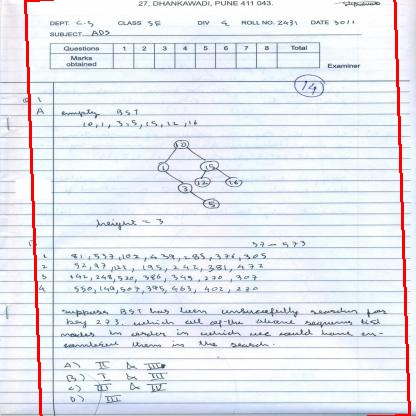 27, DHANKAWADI, PUNE 411 043.
DEPT. C-S CLASS SE DIV 4 ROLL NO. 2431 DATE 30/1
SUBJECT ADS
Questions 1 2 3 4 5 6 7 8 Total
Marks obtained
Examiner
14
Q. 1
A empty BST
10, 1, 3, 5, 15, 12, 16
10
1 15
3 12 16
5
height = 3
37 - 573
1 81, 537, 102, 439, 285, 376, 305
2 52, 97, 121, 195, 242, 381, 472
3 142, 248, 520, 386, 345, 270, 307
4 550, 149, 507, 395, 463, 402, 270
suppose BST has been unsuccessfully search for
key 273. which all of the above sequence list
nodes in order in which we could have en-
countered them in the search.
A) II & III
B) I & III
C) III & IV
D) III